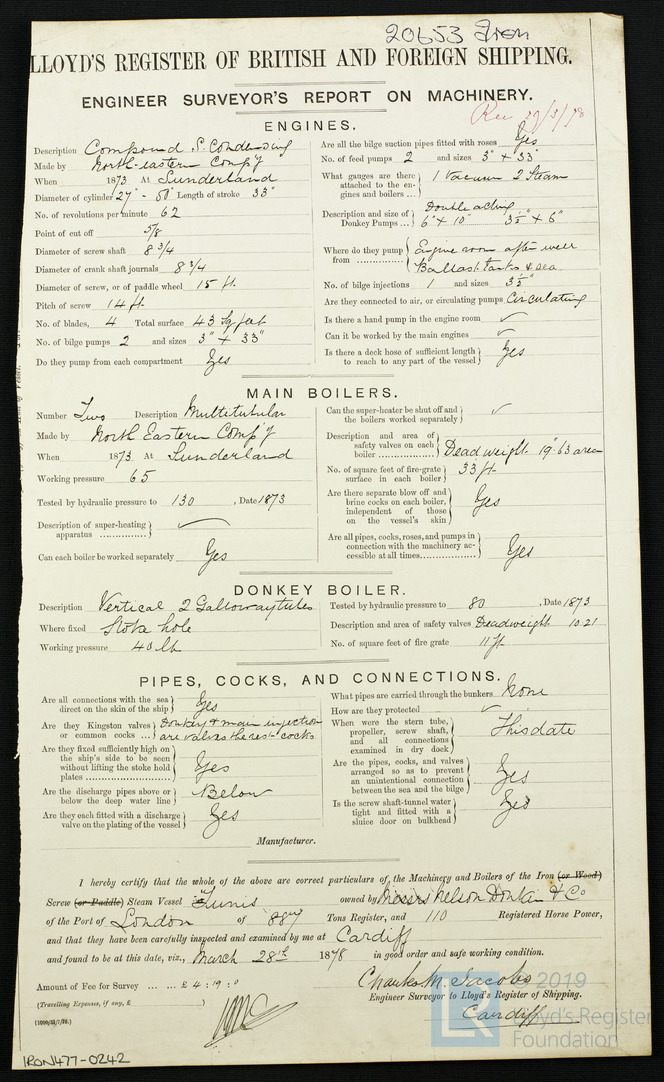 20653 Iron
LLOYD'S REGISTER OF BRITISH AND FOREIGN SHIPPING.
ENGINEER SURVEYOR'S REPORT ON MACHINERY.
Rec 29/3/78
ENGINES.
Description Compound S. Condensing
Made by North-eastern Comp'y
When 1873 At Sunderland
Diameter of cylinder 27" - 50" Length of stroke 33"
No. of revolutions per minute 62
Point of cut off 5/8
Diameter of screw shaft 8 3/4
Diameter of crank shaft journals 8 3/4
Diameter of screw, or of paddle wheel 15 ft.
Pitch of screw 14 ft.
No. of blades, 4 Total surface 43 Sq feet
No. of bilge pumps 2 and sizes 3" + 33"
Do they pump from each compartment Yes
Are all the bilge suction pipes fitted with roses Yes
No. of feed pumps 2 and sizes 3" + 33"
What gauges are there attached to the engines and boilers ... 1 Vacuum 2 Steam
Description and size of Donkey Pumps ... Double acting 6" + 10" 3½" + 6"
Where do they pump from ............... Engine room after well Ballast tanks & sea
No. of bilge injections 1 and sizes 3½"
Are they connected to air, or circulating pumps Circulating
Is there a hand pump in the engine room ✓
Can it be worked by the main engines ✓
Is there a deck hose of sufficient length to reach to any part of the vessel Yes
MAIN BOILERS.
Number Two Description Multitubular
Made by North Eastern Comp'y
When 1873 At Sunderland
Working pressure 65
Tested by hydraulic pressure to 130, Date 1873
Description of super-heating apparatus ............... ✓
Can each boiler be worked separately Yes
Can the super-heater be shut off and the boilers worked separately ✓
Description and area of safety valves on each boiler ............... Dead weight 19".63 area
No. of square feet of fire-grate surface in each boiler 33 ft.
Are there separate blow off and brine cocks on each boiler, independent of those on the vessel's skin Yes
Are all pipes, cocks, roses, and pumps in connection with the machinery accessible at all times ............... Yes
DONKEY BOILER.
Description Vertical 2 Galloway tubes
Where fixed Stoke hole
Working pressure 40 lb
Tested by hydraulic pressure to 80, Date 1873
Description and area of safety valves Deadweight 10.21
No. of square feet of fire grate 11 ft
PIPES, COCKS, AND CONNECTIONS.
Are all connections with the sea direct on the skin of the ship Yes
Are they Kingston valves or common cocks ... Donkey & main injection are valves the rest cocks
Are they fixed sufficiently high on the ship's side to be seen without lifting the stoke hold plates ............... Yes
Are the discharge pipes above or below the deep water line Below
Are they each fitted with a discharge valve on the plating of the vessel Yes
What pipes are carried through the bunkers None
How are they protected ✓
When were the stern tube, propeller, screw shaft, and all connections examined in dry dock This date
Are the pipes, cocks, and valves arranged so as to prevent an unintentional connection between the sea and the bilge Yes
Is the screw shaft-tunnel water tight and fitted with a sluice door on bulkhead Yes
Manufacturer.
I hereby certify that the whole of the above are correct particulars of the Machinery and Boilers of the Iron (or Wood)
Screw (or Paddle) Steam Vessel "Tunis owned by Messrs Nelson Donkin & Co
of the Port of London of 889 Tons Register, and 110 Registered Horse Power,
and that they have been carefully inspected and examined by me at Cardiff
and found to be at this date, viz., March 28th 1878 in good order and safe working condition.
Amount of Fee for Survey ... ... £ 4 : 19 : 0
Charles M. Jacobs
Engineer Surveyor to Lloyd's Register of Shipping.
(Travelling Expenses, if any, £ )
Cardiff
IRON477-0242
© 2019
LR
Lloyd's Register
Foundation